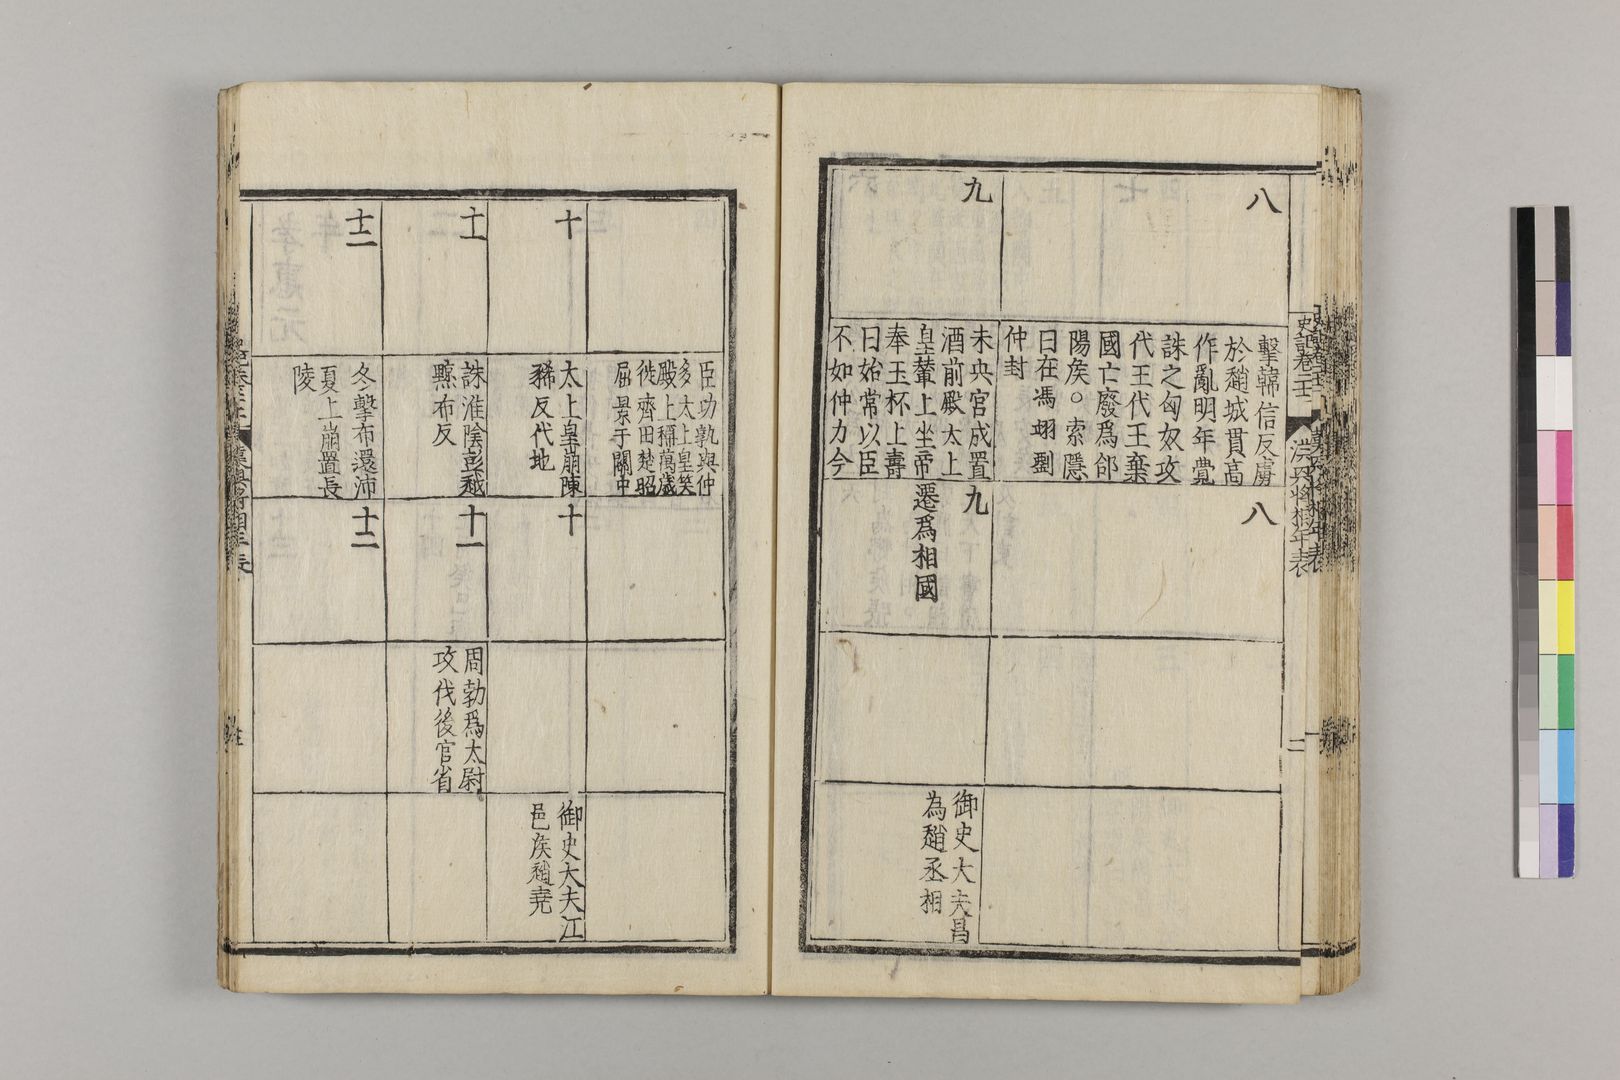 史記卷二十二
漢興將相年表
二
八
擊韓信反虜
於趙城貫高
作亂明年覺
誅之匈奴攻
代王代王棄
國亡廢爲郃
陽矦○索隱
曰在馮翊劉
仲封
八
九
未央官成置
酒前殿太上
皇輦上坐帝
奉玉杯上壽
曰始常以臣
不如仲力今
九
遷爲相國
御史大夫昌
為趙丞相
臣功孰與仲
多太上皇笑
殿上稱萬歲
徙齊田楚昭
屈景于關中
十
太上皇崩陳
豨反代地
十
御史大夫江
邑矦趙堯
十一
誅淮陰彭越
黥布反
十一
周勃爲太尉
攻伐後官省
十二
冬擊布還沛
夏上崩置長
陵
十二